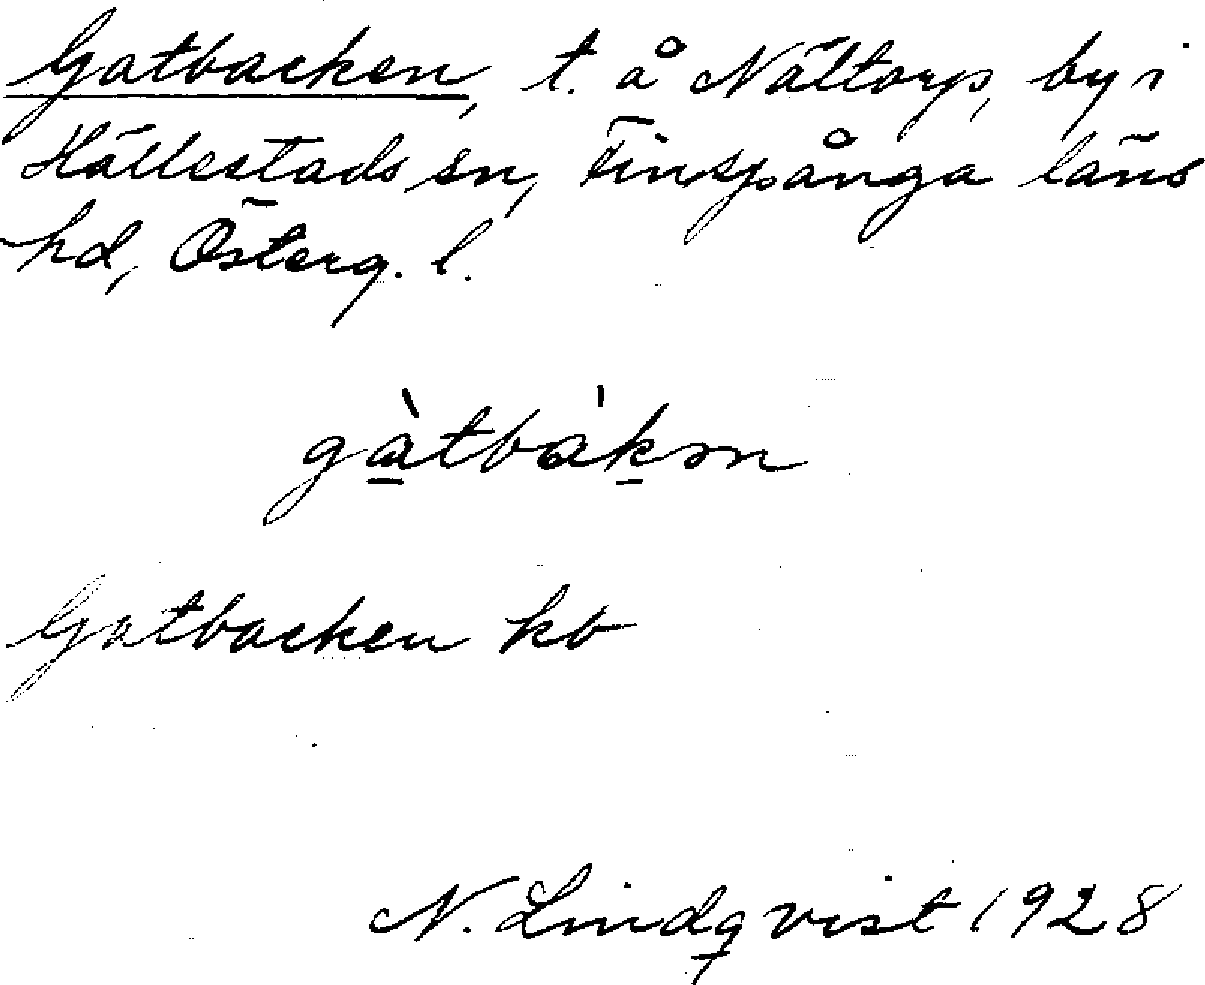 Gatbacken, t. å Nältorp, by i
Hällestads sn, Finspånga läns
hd, Österg. l.
gàtbàkən
Gatbacken kb
N. Lindqvist 1928